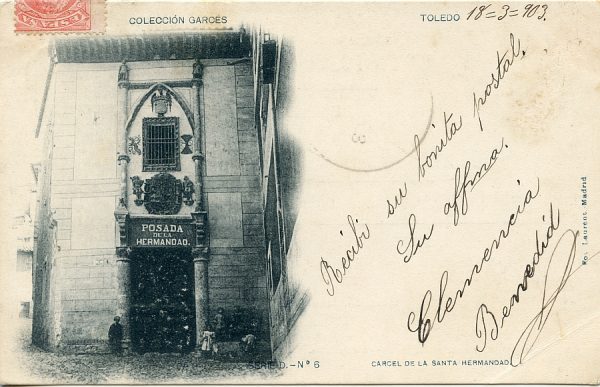 COLECCIÓN GARCÉS
TOLEDO 18=3=903.
POSADA
DE LA
HERMANDAD.
Récibi su bonita postal,
Su affma.
Clemencia
Benedid
D.-Nº 6
CARCEL DE LA SANTA HERMANDAD.
Fo. Laurent. Madrid